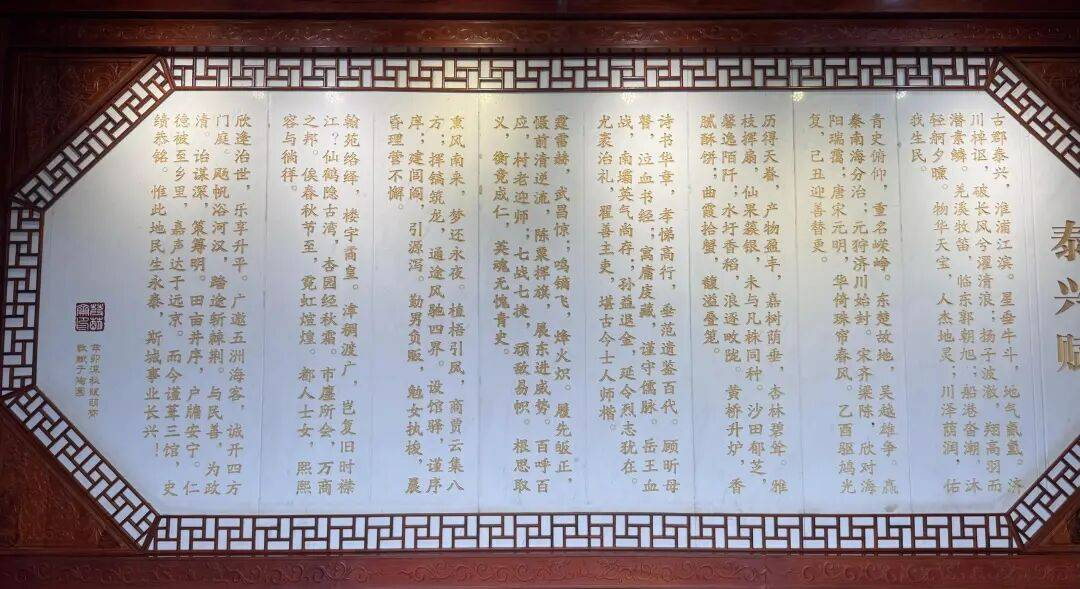 泰兴赋
古郡泰兴，淮浦江滨。星垂牛斗，地气氤氲。济
川棹讴，破长风兮濯清浪；扬子波潋，翔高羽而
潜素鳞。羌溪牧笛，临东郭朝旭；船港沓潮，沐
轻舸夕曛。物华天宝，人杰地灵；川泽荫润，佑
我生民。
青史俯仰，重名嵘峥。东楚故地，吴越雄争。嬴
秦南海分治；元狩济川始封。宋齐梁陈，欣对海
阳瑞霭；唐宋元明，华倚珠帘春风。乙酉驱鸠光
复，己丑迎善替更。
历得天眷，产物盈丰，嘉树荫垂，杏林碧耸。雅
枝挥扇，仙果簇银，未与凡株同种。沙田郁芝，
馨逸陌阡；水圩香稻，浪逐畋陇。黄桥升炉，香
腻酥饼；曲霞拾蟹，馥溢叠笼。
诗书华章，孝悌高行，垂范遗鉴百代。顾昕母
瞽，泣血书经；寓庸庋藏，谨守儒脉。岳王血
战，南壩英气尚存；孙益退金，延令烈志犹在。
尤袤治礼，翟善主吏，堪古今士人师楷。
霆雷赫，武昌惊；鸣镝飞，烽火炽。履先皈正，
慑前清逆流，陈粟挥旗，展东进威势。百呼百
应，村老迎师；七战七捷，顽敌易帜。根思取
义，衡竟成仁，英魂无愧青史。
熏风南来，梦还永夜。植梧引凤，商贾云集八
方；挥镐筑龙，通途风驰四界。设馆驿，谨序
序；建闾阎，引源泻。勤男负贩，勉女执梭，晨
昏理营不懈。
翰苑络绎，楼宇矞皇。漳稠渡广，岂复旧时襟
江？仙鹤隐古湾，杏园经秋霜。市廛所会，万商
之邦。俟春秋节至，霓虹煊煌。都人士女，熙熙
容与徜徉。
欣逢治世，乐享升平。广邀五洲海客，诚开四方
门庭。飏帆浴河汉，踏途斩棘荆。与民善，为政
清；诒谋深，策筹明。田亩井序，户牖安宁。仁
德被至乡里，嘉声达于远京。而今谨革三馆，史
绩恭铭。惟此地民生永泰，斯城事业长兴！